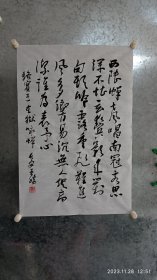 西陸蟬声唱南冠客思
深不堪玄鬢影来对
白头吟露重飛難進
風多響易沉無人信高
潔誰為表予心
骆賓王在獄咏蟬
2023.11.28 11:26